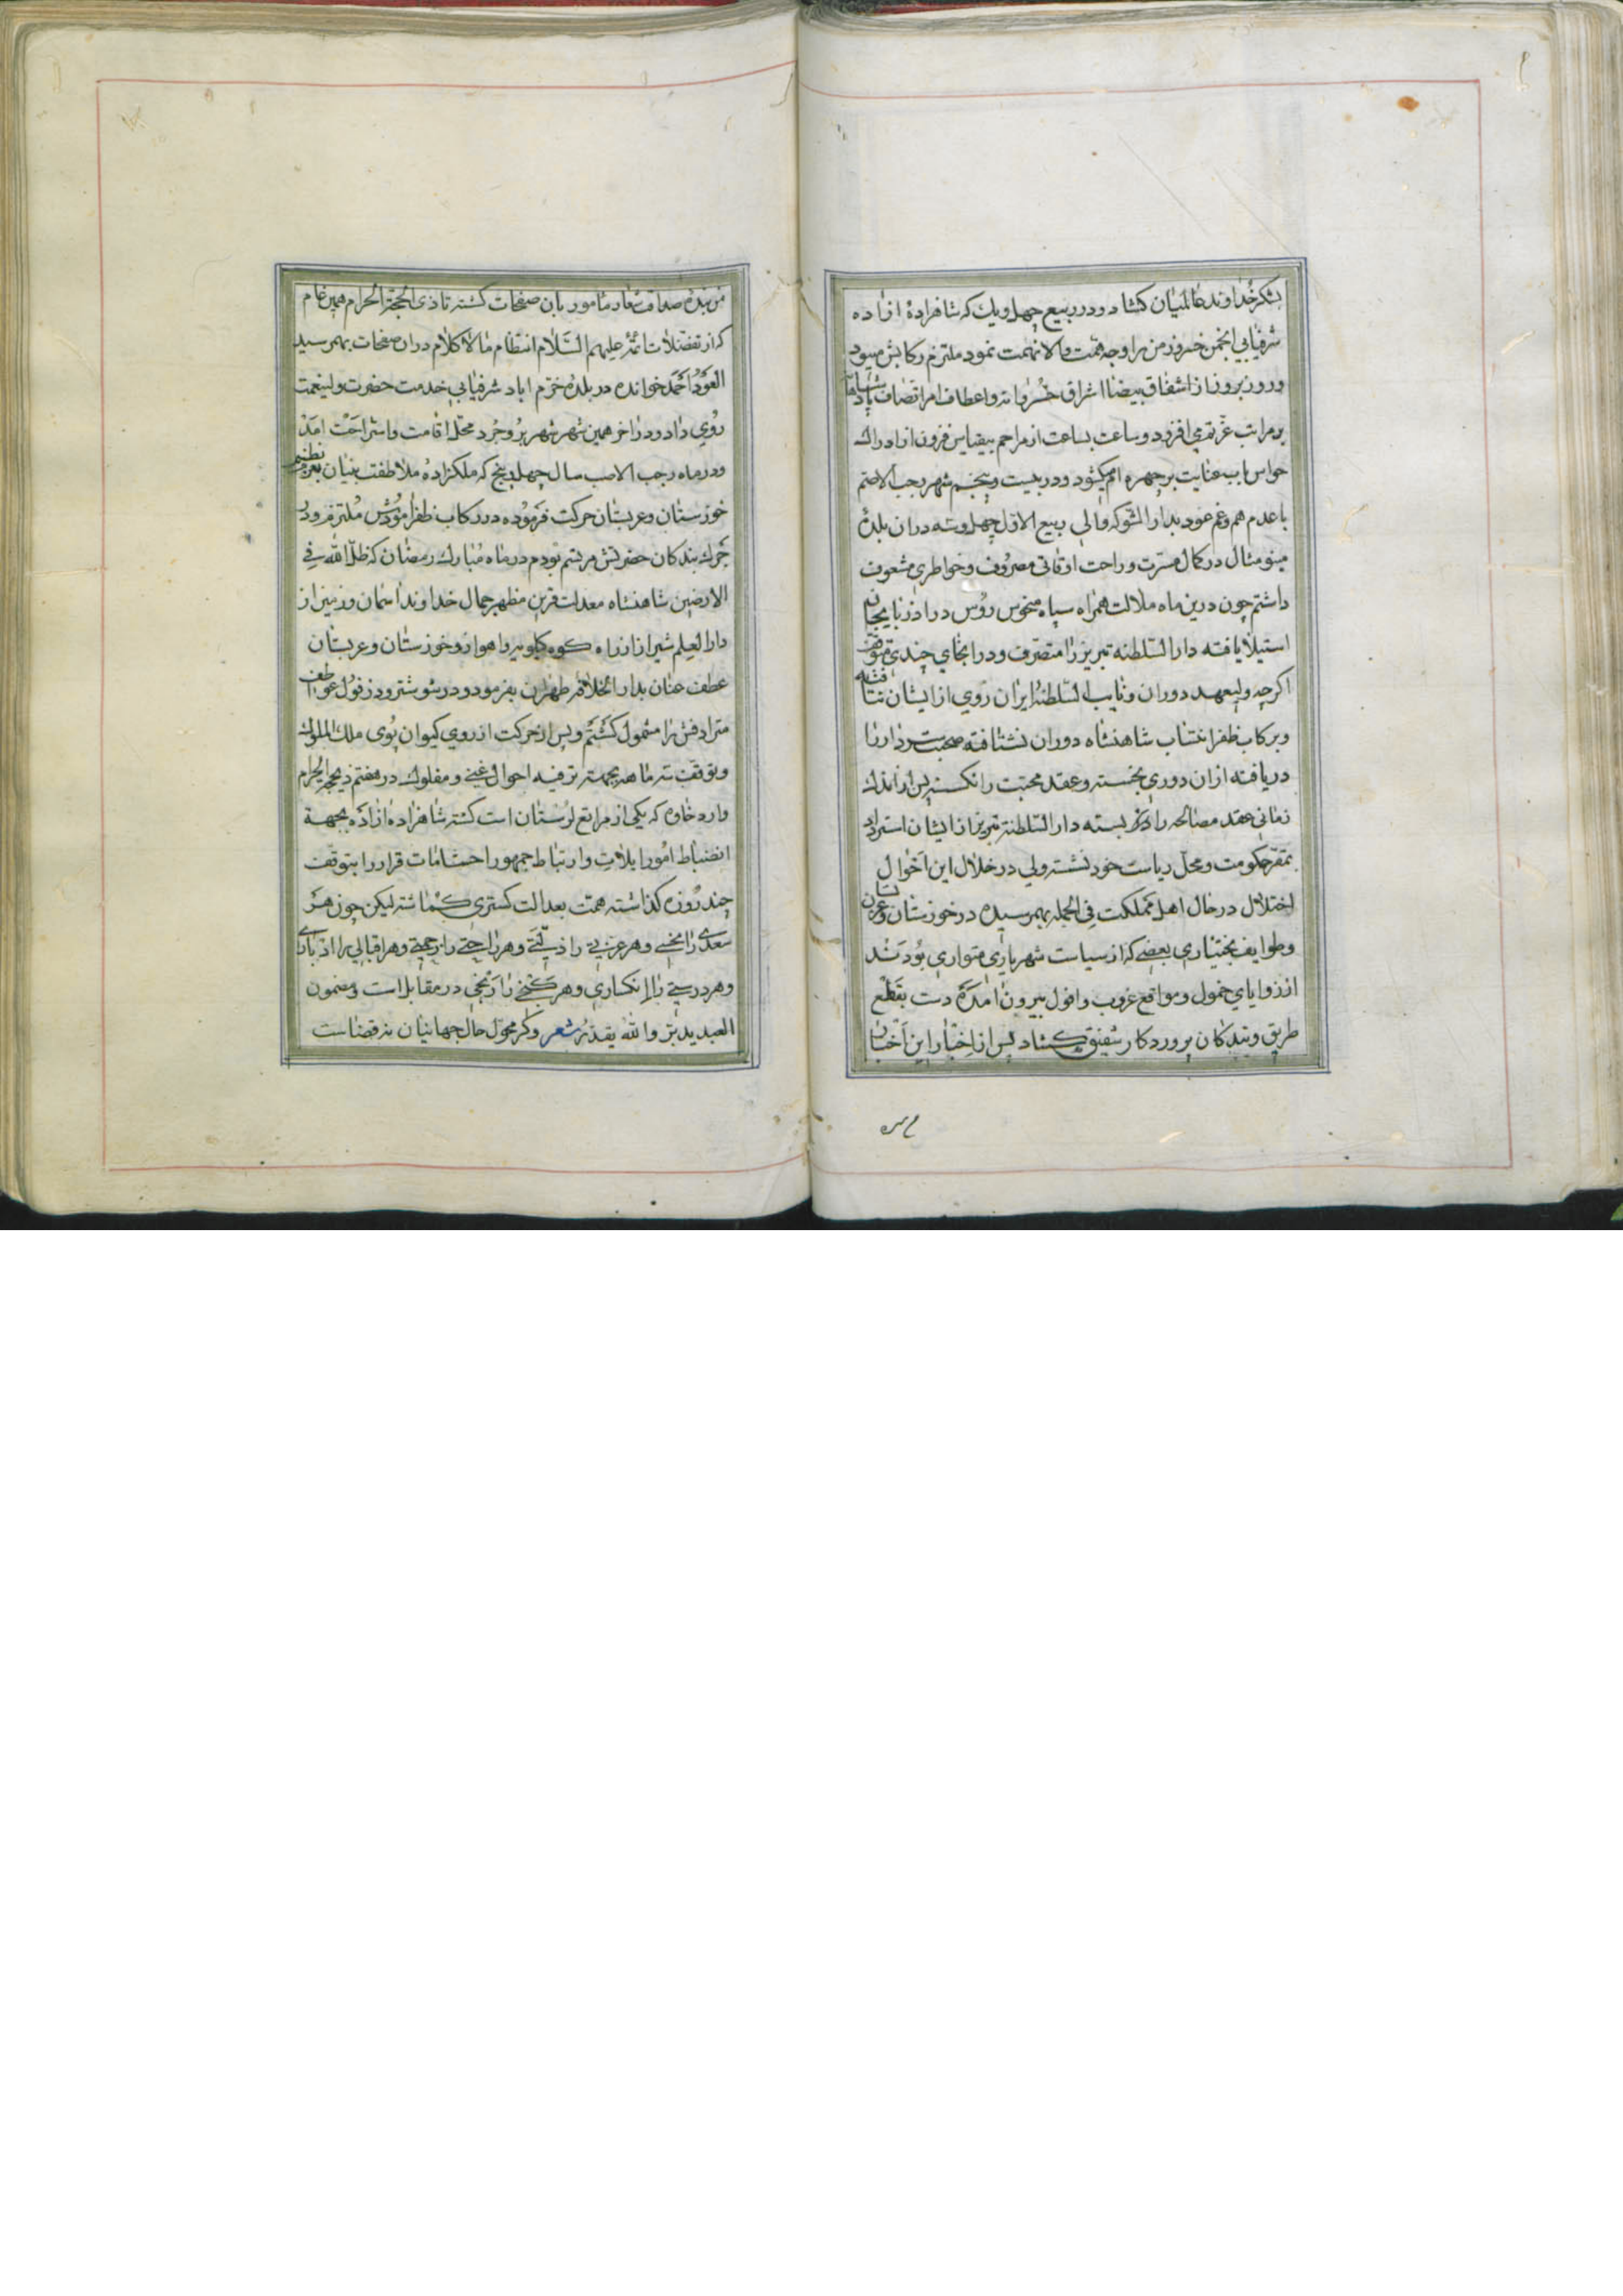 بشکر خداوند عالمیان کشاد و در ربیع چهل و یک که شاهزادهٔ ازاده
شرفیابی انجمن خسروز من را وجه همت و مالا نهمت نمود ملتزم رکابش میبود
و روز بروز از اشفاق بیضا اشراق خسروانه و اعطاف امر اقتصاف پادشاها
بر مراتب عزتم می افزود و ساعت بساعت از مراحم بیقیاس فزون از ادراك
حواس باب عنایت بر چهره ام میکشود و در بیست و پنجم شهر رجب الاصم
با عدم هم و غم عود بدار الشوکه و الی ربیع الاول چهل و سه دران بلدهٔ
مینو مثال در کمال مسرت و راحت اوقاتی مصروف و خواطری مشعوف
داشتم چون درین ماه ملالت همراه سپاه منحوس روس در اذربایجان
استیلا یافته دار السلطنه تبریز را متصرف و در انجای چندی متوقف
اکرچه ولیعهد دوران و نایب السلطنهٔ ایران روی از ایشان نتافته
و برکاب ظفر انتساب شاهنشاه دوران نشتافته صحبت سردار را
دریافته ازان دوری بخسته و عقد محبت را نکسسته پس از اندك
زمانی عقد مصالحه را در بسته دار السلطنه تبریز از ایشان استرداد
بمقر حکومت و محل ریاست خود نشسته ولی در خلال این احوال
اختلال در حال اهل مملکت فی الجمله بهمرسیده در خوزستان و عربستان
و طوایف بختیاری بعضی که از سیاست شهریاری متواری بودند
از زوایای خمول و مواقع غروب و افول بیرون امده دست بقطع
طریق و بندکان پروردکار شفیق کشاد پس از اخبار این اخبار
من بنده صداقت شعار مامور بان صفحات کشته تا ذی الحجة الحرام همین عام
که از تفضلات ائمه علیهم السلام انتظام ما لا کلام دران صفحات بهمرسید
العود احمد خوانده در بلدهٔ خرم اباد شرفیابی خدمت حضرت ولینعمت
روی داد و در اخر همین شهر شهر بروجرد محل اقامت و استراحت امد
و در ماه رجب الاصب سال چهل و پنج که ملکزادهٔ ملاطفت بنیان بعزم تنظیم
خوزستان و عربستان حرکت فرموده در رکاب ظفر املتزم و در
جرك بندکان حضرتش مرتسم بودم در ماه مبارك رمضان که ظل الله فی
الارضین شاهنشاه معدلت قرین مظهر جمال خداوند اسمان و زمین از
دار العلم شیراز از راه کوه کیلویه و اهواز و خوزستان و عربستان
عطف عنان بدار الخلافه طهران بفرمود و در شوشتر و دزفول عواطف
مترادفش را مشمول کشتم و پس از حرکت اردوی کیوان پوی ملك الملوك
و توقف سه ماهه بجهته ترفیه احوال غنی و مفلوك در هفتم ذیحجه الحرام
وارد خاوه که یکی از مراتع لرستان است کشته شاهزاده ازاده بجهة
انضباط امور ایلات و ارتباط جمهور احتشامات قرار را بتوقف
چند روزه کذاشته همت بعدالت کستری کماشته لیکن چون هر
سعدی را نحسی و هر عزتی را ذلتی و هر راحتی را زحمتی و هر اقبالی را ادباری
و هر درستی را انکساری و هر کنجی را رنجی در مقابل است و مضمون
العبد یدبر و الله یقدر شعر وکر محول حال جهانیان نه قضاست